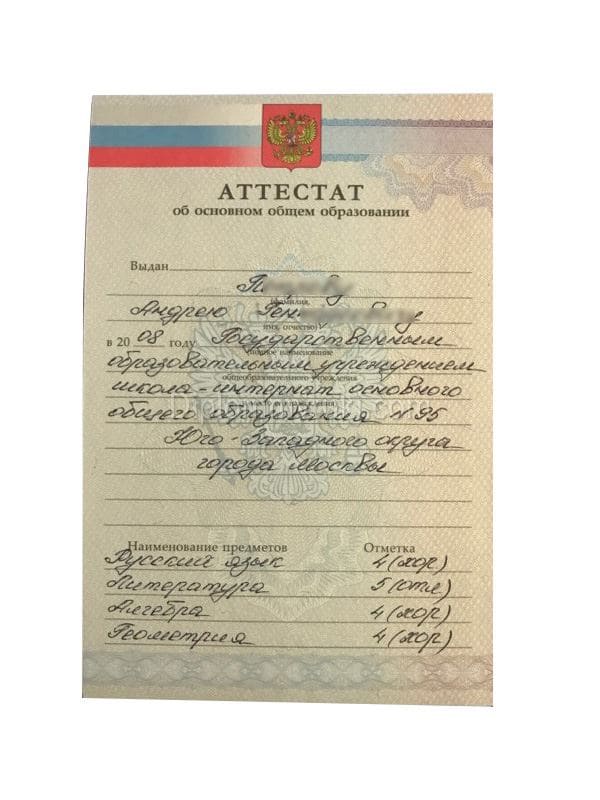 АТТЕСТАТ
об основном общем образовании
Выдан
(фамилия,
Андрею
имя, отчество)
в 2008 году Государственным
(полное наименование
образовательным учреждением
общеобразовательного учреждения
школа-интернат основного
общего образования №95
Юго-Западного округа
города Москвы
Наименование предметов Отметка
Русский язык 4 (хор)
Литература 5 (отл)
Алгебра 4 (хор)
Геометрия 4 (хор)